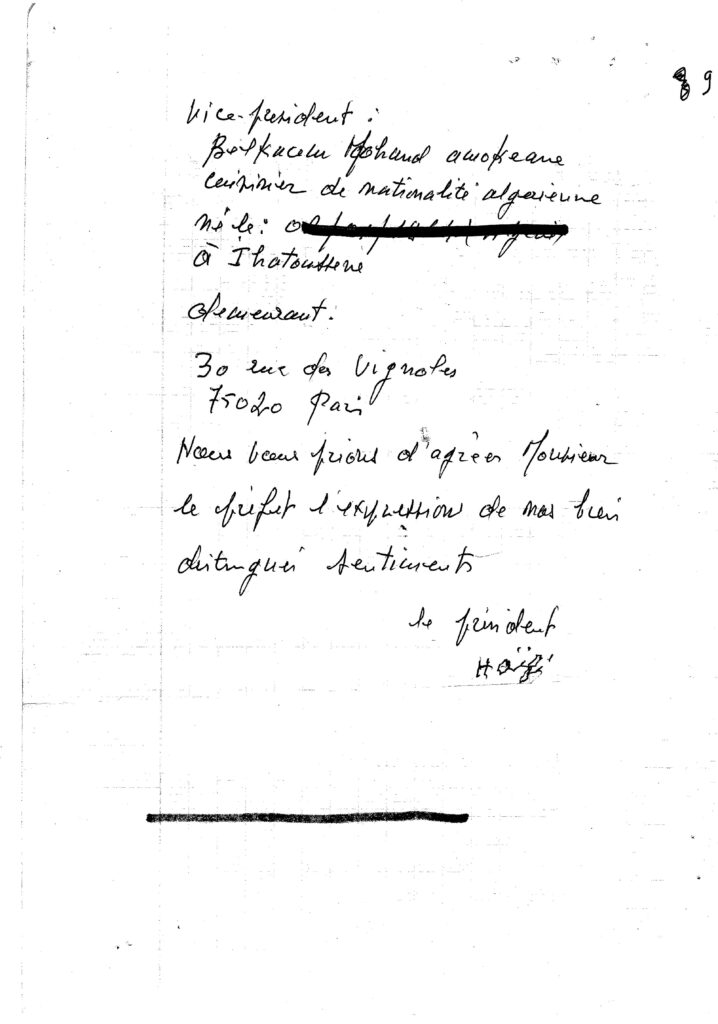 9
Vice-président :
Belkacem Mohand amokrane
cuisinier de nationalité algérienne
né le :
à Ihatoussene
demeurant :
30 rue des Vignoles
75020 Paris
Nous vous prions d'agréer Monsieur
le préfet l'expression de nos bien
distingués sentiments
le président